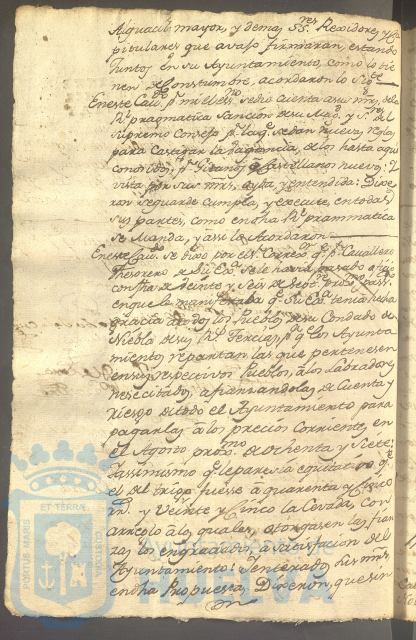 Alguacil mayor, y demas SS.res Rexidores, y Ca
pitulares que avajo firmaran, estando
Juntos en su Ayuntamiento, como lo tie
nen de Constumbre, acordaron lo sig.te
En este Cav.do p.r mi el es.no se dio cuenta a sus mrs. de la
R.l pragmatica Sancion de su Mag.d y S.res del
Supremo Consejo p.r la q.e se dan nuevas reglas
para castigar la vagancia, de los hasta aqui
conocidos p.r Gitanos, o Castellanos nuevos: Y
vista por sus mrs, oyda, y entendida: Dixe
ron se guarde cumpla, y execute, en todas
sus partes, como en dha R.l prammatica
se Manda, y assi lo Acordaron
En este Cav.do se dixo por el S.r Correx.or q.e p.r Cavallero
Tesorero de su Ex.a se le havia pasado oficio
con fha de veinte y seis de Sept.e prox.mo pass.do
en que le manifestaba q.e su Ex.a tenia hecha
gracia a todos los Pueblos de su Condado de
Niebla de sus R.s Tercias p.a q.e los Ayunta
mientos repartan las que pertenesen
en sus respectivos Pueblos, a los Labradores
nesecitados, afianzandolas de Cuenta y
riesgo de todo el Ayuntamiento para
pagarlas a los precios Corriente, en
el Agosto prox.mo de ochenta y siete:
Y assimismo q.e le parecia equitativo q.e
el del trigo fuesse a quarenta y cinco
rr.s y Veinte y Cinco la Cevada, con
arreglo a los quales, otorgasen las fian
zas los engraciados, a satisfaccion del
Ayuntamiento: Y enterados sus mrs.
en dha Propuesta, Dixeron, que sin
PORTUS MARIS
ET TERRÆ
CUSTODIA
Ayuntamiento de
HUELVA